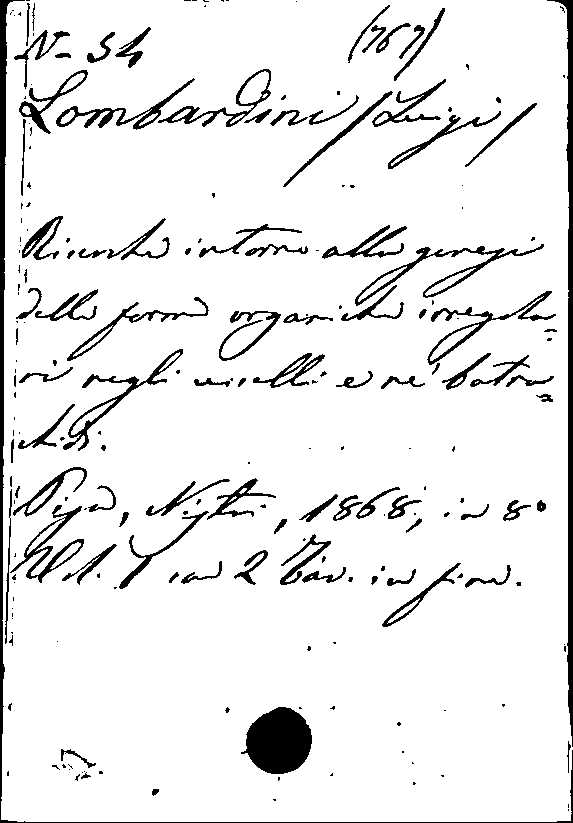 N- 54 (767)
Lombardini /Luigi/
Ricerche intorno alla genesi
delle forme organiche irregola=
ri negli uccelli e ne' batra=
chidi.
Pisa, Nistri, 1868, in 8°
Vol. 1 con 2 Tav. in fine.